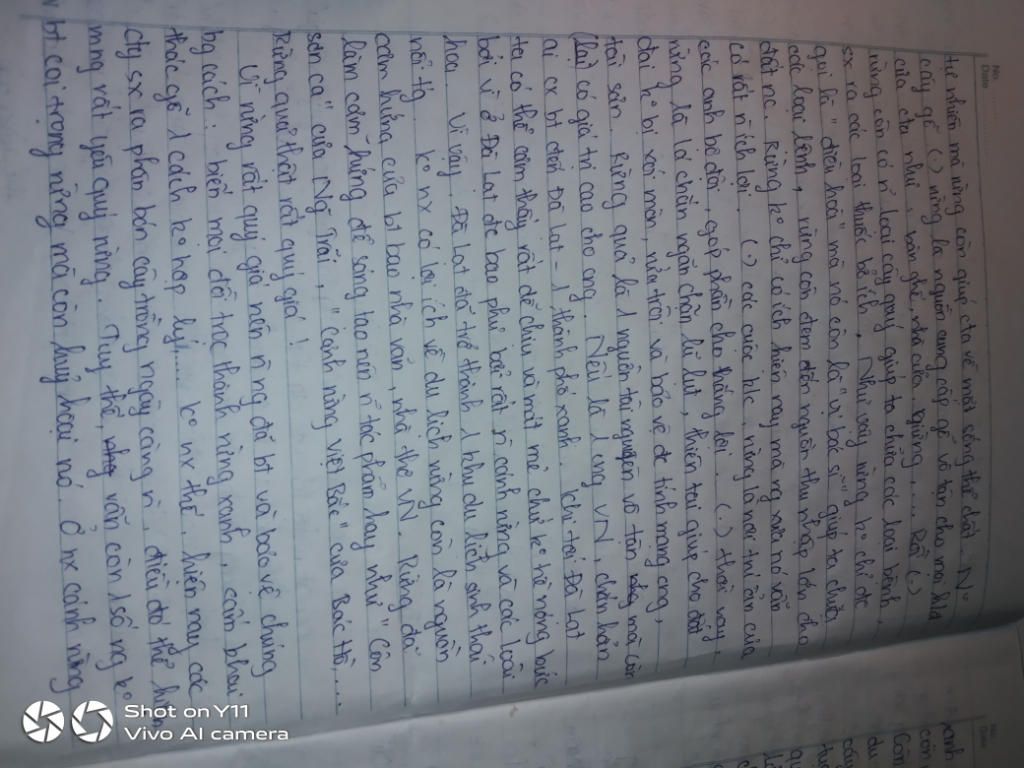 No.
Date
tự nhiên mà rừng còn giúc cta về mặt sống thể chất. N°
cây gỗ (.) rừng là nguồn cung cấp gỗ vô tận cho mọi
của cta như, bàn ghế, nhà cửa, giường,.... Rồi (.)
rừng còn có n~ loài cây quý giúp ta chữa các loại bệnh,
sx ra các loại thuốc bổ ích. Như vậy rừng k° chỉ đc
gọi là "điều hoà" mà nó còn là "vị bác sĩ" giúp ta chữa
các loại bệnh, rừng còn đem đến nguồn thu nhập lớn cho
đất nc. Rừng k° chỉ có ích hiện nay mà ng xưa nó vẫn
có rất n` ích lợi. (.) các cuộc k/c, rừng là nơi trú ẩn của
các anh bộ đội, góp phần cho thắng lợi. (.) thời nay,
rừng là lá chắn ngăn chặn lũ lụt, thiên tai giúp cho đất
đai k° bị xói mòn, rửa trôi và bảo vệ đc tính mạng cng,
tài sản. Rừng quả là 1 nguồn tài nguyên vô tận mà còn
(lại) có giá trị cao cho cng. Nếu là 1 cng VN, chắn hẳn
ai cx bt đến Đà Lạt - 1 thành phố xanh. Khi tới Đà Lạt
ta có thể cảm thấy rất dễ chịu và mát mẻ chứ k° hề nóng bức
bởi vì ở Đà Lạt đc bao phủ bởi rất n` cánh rừng và các loài
hoa. Vì vậy, Đà Lạt đã trở thành 1 khu du lịch sinh thái
nổi tg. K° nx có lợi ích về du lịch rừng còn là nguồn
cảm hứng của bt bao nhà văn, nhà thơ VN. Rừng đã
làm cảm hứng để sáng tạo nên n~ tác phẩm hay như "Côn
sơn ca" của Ng~ Trãi, "Cảnh rừng Việt Bắc" của Bác Hồ,...
Rừng quả thật rất quý giá!
Vì rừng rất quý giá nên n` ng đã bt và bảo vệ chúng
bg cách: biến mọi đồi trọc thành rừng xanh, cánh khai
thác gỗ 1 cách k° hợp lý,... k° nx thế, hiện nay các
cty sx ra phân bón cây trồng ngày càng n`, điều đó thể hiện
mng rất yêu quý rừng. Tuy thế, vẫn còn 1 số ng k°
bt coi trọng rừng mà còn huỷ hoại nó. Ở nx cánh rừng
Shot on Y11
Vivo AI camera